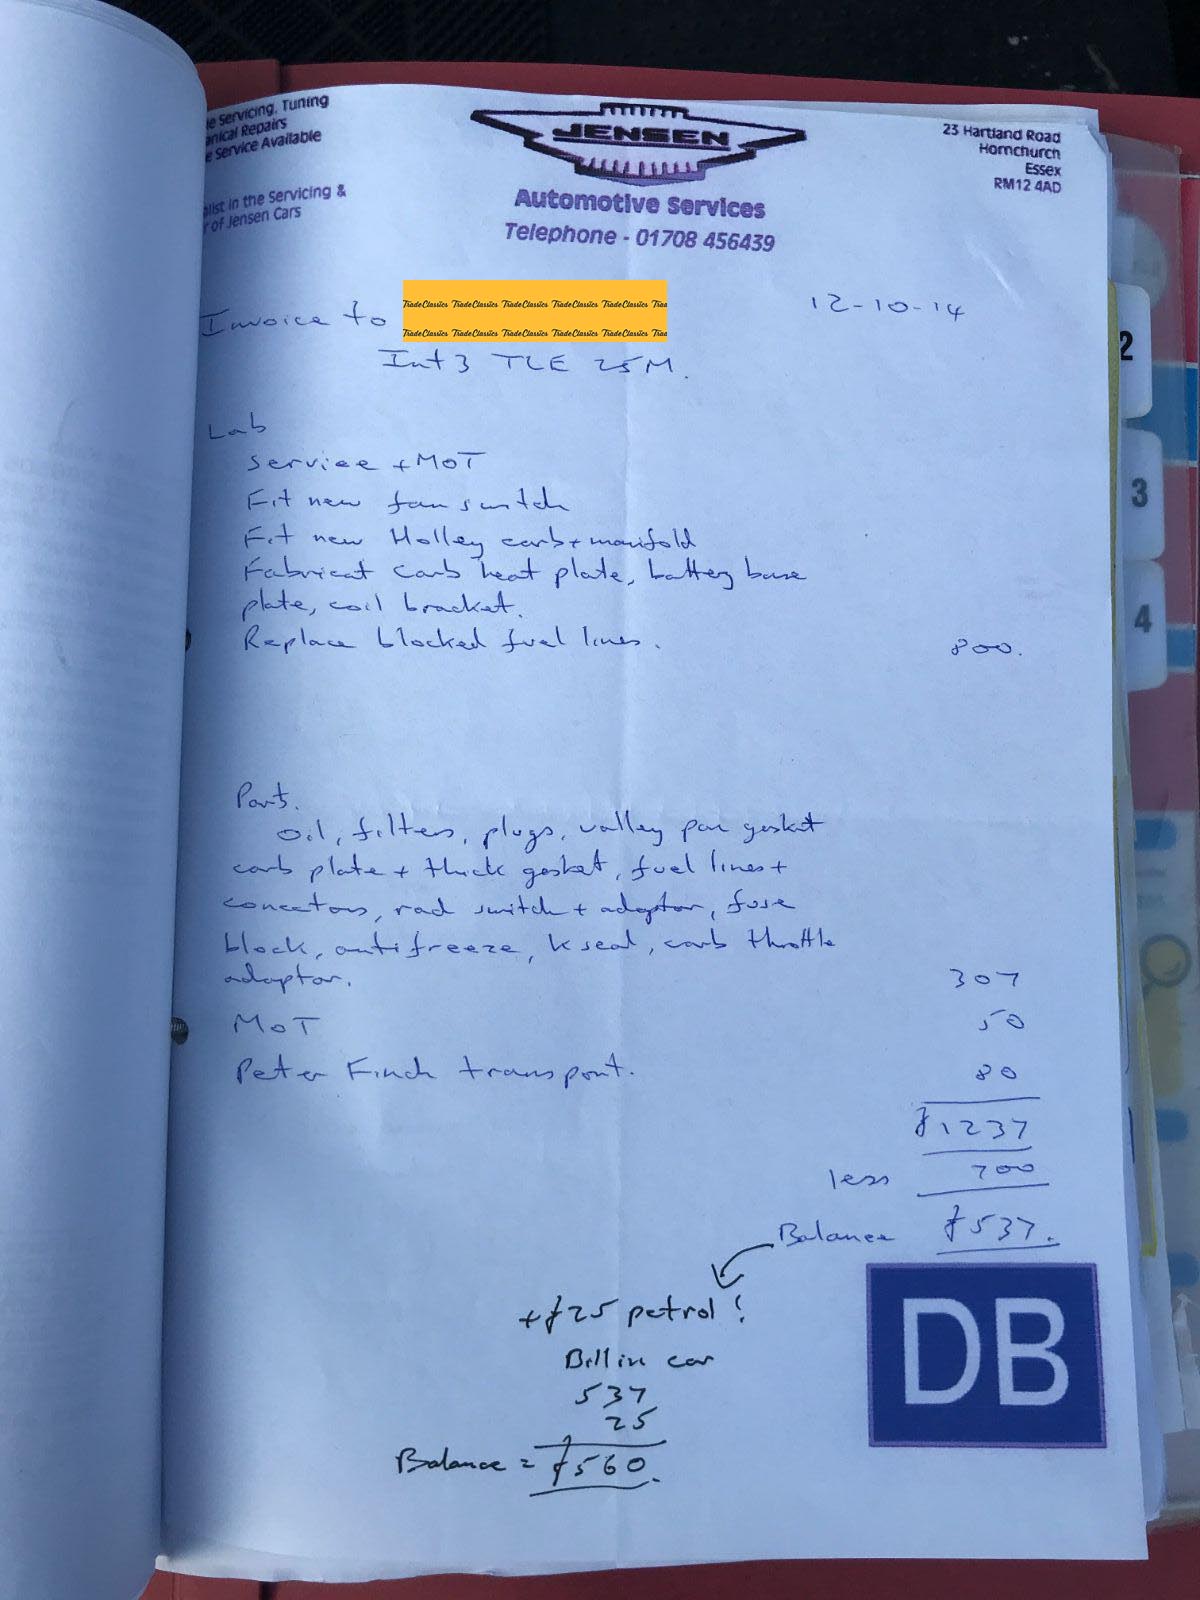 e Servicing, Tuning
anical Repairs
e Service Available
alist in the Servicing &
r of Jensen Cars
JENSEN
Automotive Services
Telephone - 01708 456439
23 Hartland Road
Hornchurch
Essex
RM12 4AD
Invoice to
TradeClassics TradeClassics TradeClassics TradeClassics TradeClassics Trad
TradeClassics TradeClassics TradeClassics TradeClassics TradeClassics Trad
12-10-14
Int 3 TLE 25M.
Lab
Service + MOT
Fit new fan switch
Fit new Holley carb + manifold
Fabricat carb heat plate, battery base
plate, coil bracket.
Replace blocked fuel lines. 800.
Parts.
oil, filters, plugs, valley pan gasket
carb plate + thick gasket, fuel lines +
concetors, rad switch + adaptor, fuse
block, antifreeze, K seal, carb throttle
adaptor. 307
MOT 50
Peter Finch transport. 80
£1237
less 700
Balance £537.
+£25 petrol!
Bill in car
537
25
Balance = £560.
DB
2
3
4